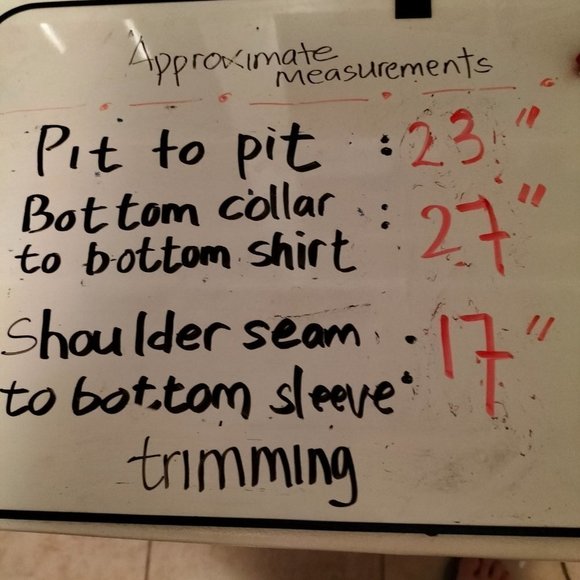 Approximate
measurements
Pit to pit : 23"
Bottom collar : 27"
to bottom shirt
Shoulder seam : 17"
to bottom sleeve
trimming